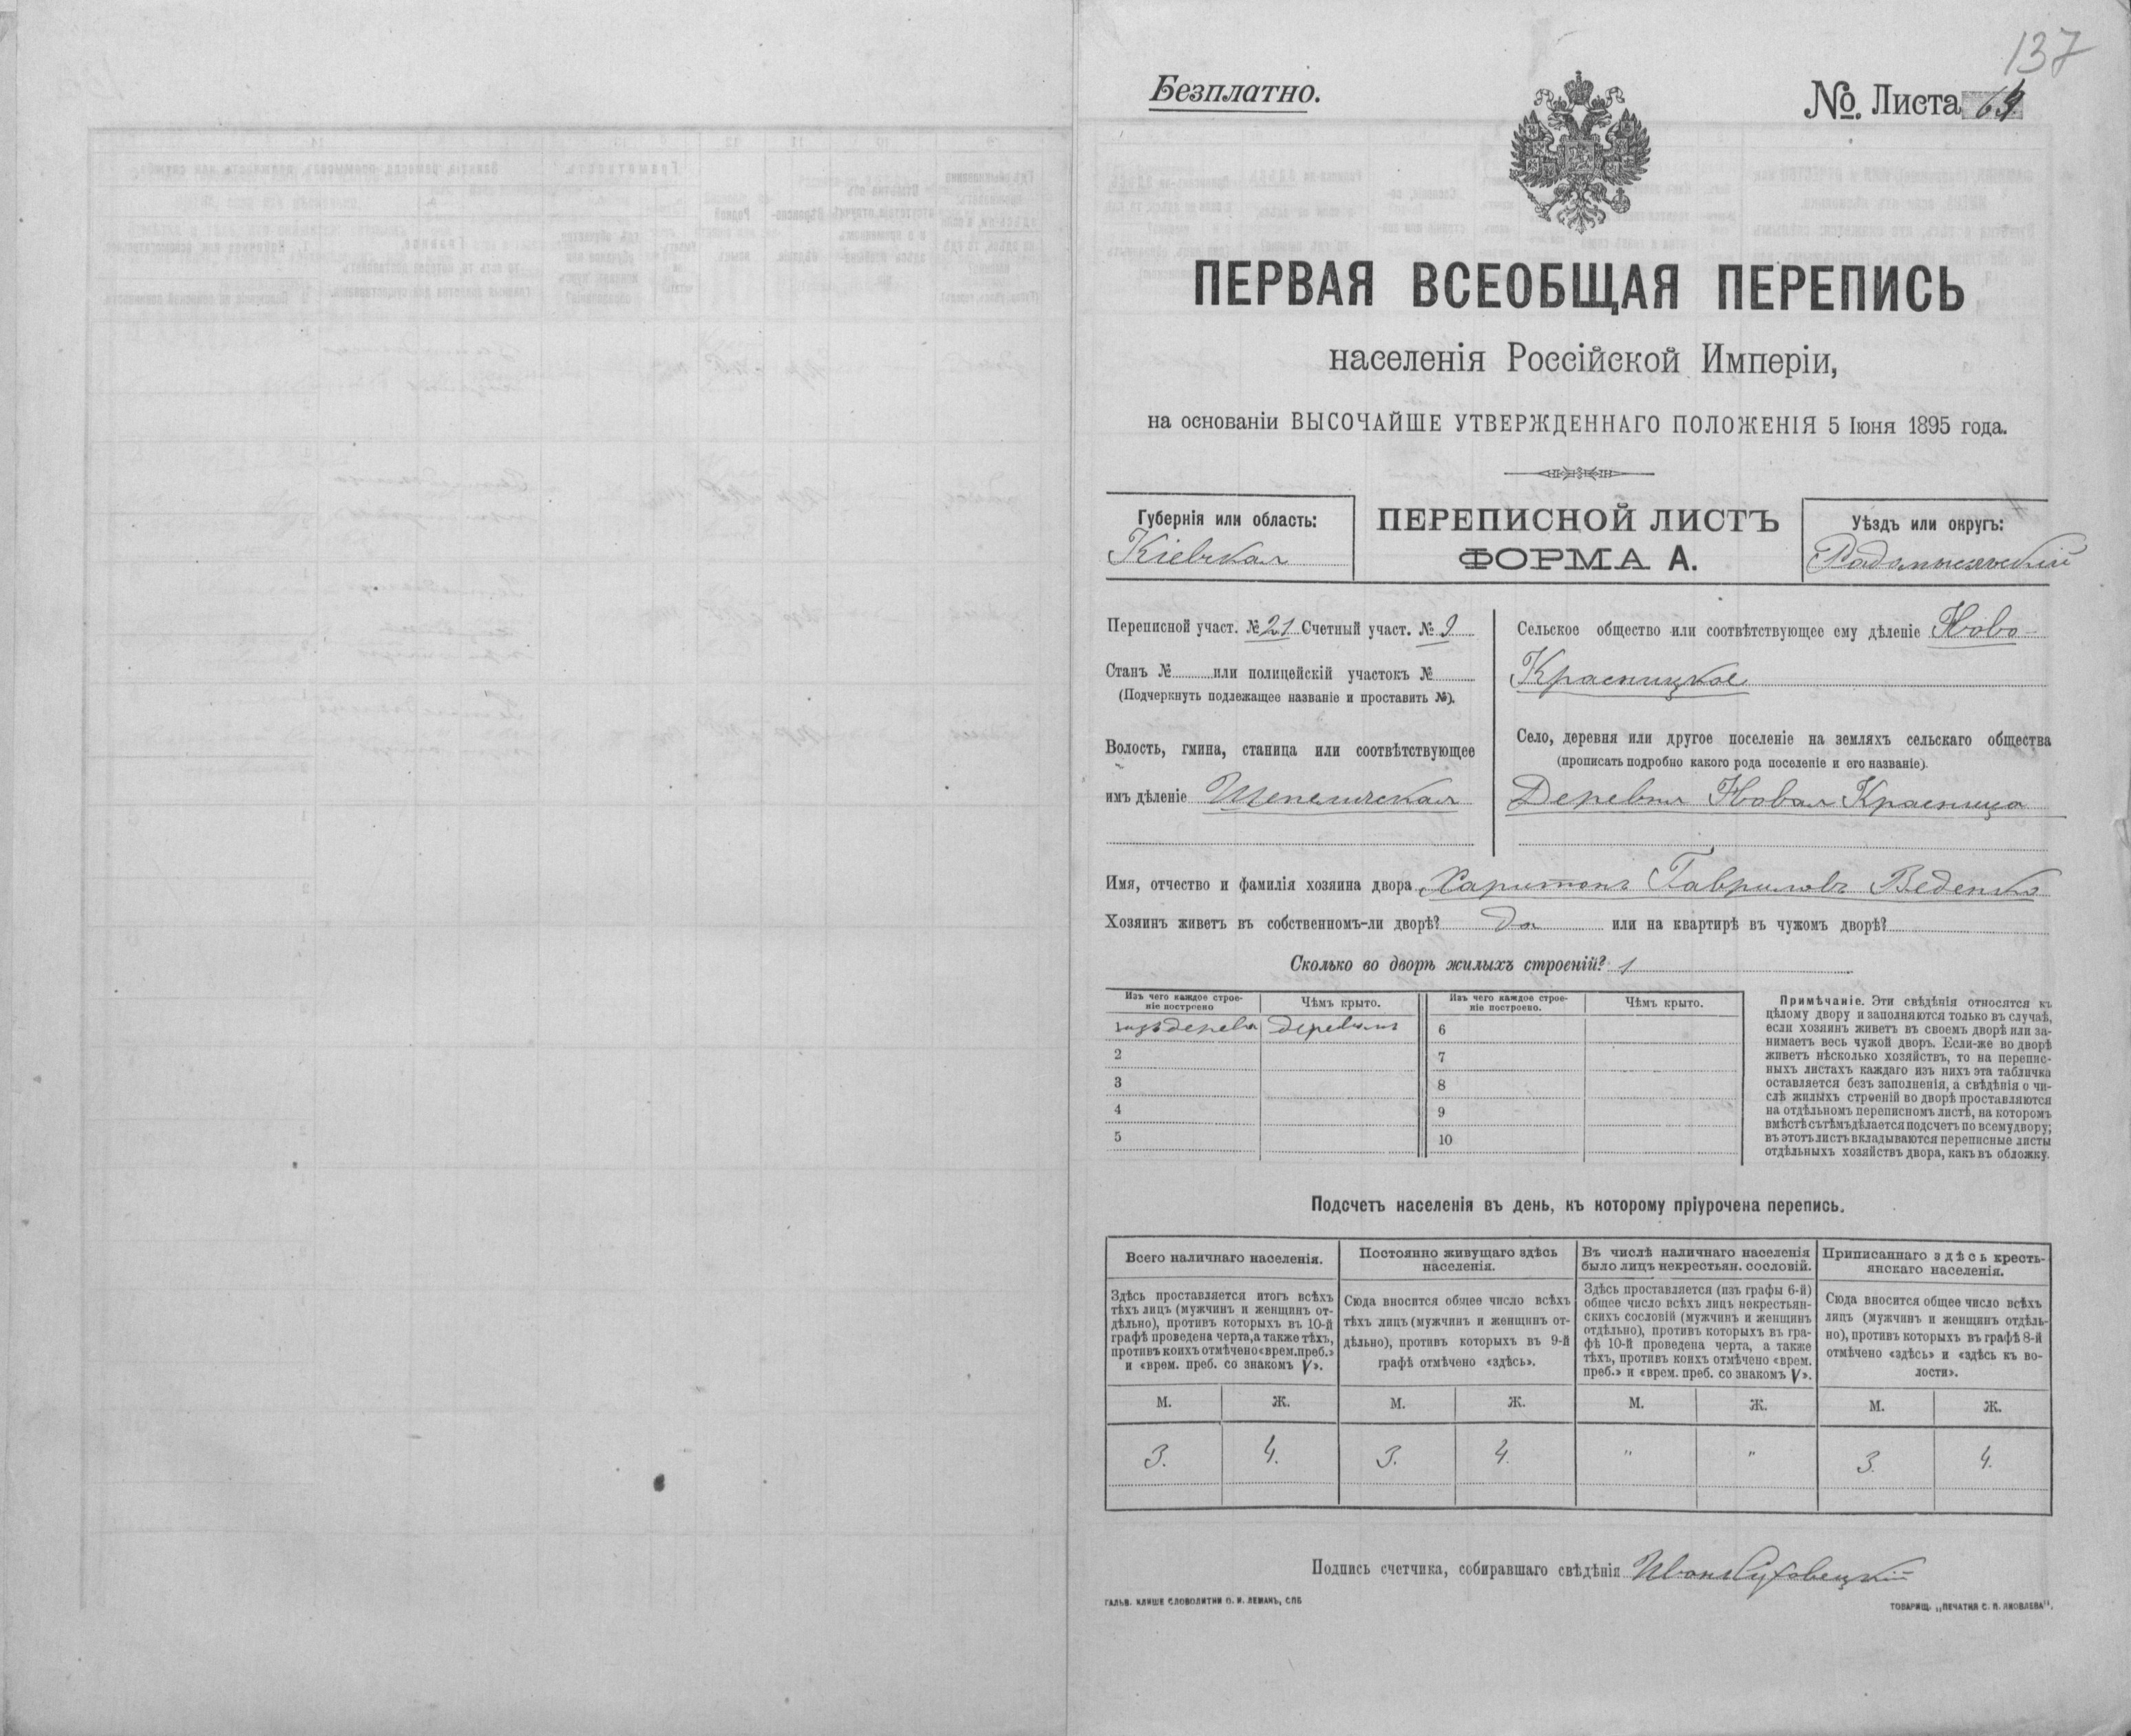 137
Безплатно.
№. Листа 69
ПЕРВАЯ ВСЕОБЩАЯ ПЕРЕПИСЬ
населенія Россійской Имперіи,
на основаніи ВЫСОЧАЙШЕ УТВЕРЖДЕННАГО ПОЛОЖЕНІЯ 5 Іюня 1895 года.
Губернія или область:
Кіевская
ПЕРЕПИСНОЙ ЛИСТЪ
ФОРМА А.
Уѣздъ или округъ:
Радомысльскій
Переписной участ. № 21 Счетный участ. № 9
Станъ № или полицейскій участокъ №
(Подчеркнуть подлежащее названіе и проставить №).
Волость, гмина, станица или соотвѣтствующее
имъ дѣленіе Шепеличская
Сельское общество или соотвѣтствующее ему дѣленіе Ново-
Красницкое
Село, деревня или другое поселеніе на земляхъ сельскаго общества
(прописать подробно какого рода поселеніе и его названіе).
Деревня Новая Красница
Имя, отчество и фамилія хозяина двора Харитонъ Гавриловъ Веденко
Хозяинъ живетъ въ собственномъ-ли дворѣ? Да или на квартирѣ въ чужомъ дворѣ?
Сколько во дворѣ жилыхъ строеній? 1
Изъ чего каждое строе-
ніе построено
Чѣмъ крыто.
Изъ чего каждое строе-
ніе построено.
Чѣмъ крыто.
изъ дерева деревомъ 6
2 7
3 8
4 9
5 10
Примѣчаніе. Эти свѣдѣнія относятся къ
цѣлому двору и заполняются только въ случаѣ,
если хозяинъ живетъ въ своемъ дворѣ или за-
нимаетъ весь чужой дворъ. Если-же во дворѣ
живетъ нѣсколько хозяйствъ, то на перепис-
ныхъ листахъ каждаго изъ нихъ эта табличка
оставляется безъ заполненія, а свѣдѣнія о чи-
слѣ жилыхъ строеній во дворѣ проставляются
на отдѣльномъ переписномъ листѣ, на которомъ
вмѣстѣ съ тѣмъ дѣлается подсчетъ по всему двору;
въ этотъ листъ вкладываются переписные листы
отдѣльныхъ хозяйствъ двора, какъ въ обложку.
Подсчетъ населенія въ день, къ которому пріурочена перепись.
Всего наличнаго населенія.
Здѣсь проставляется итогъ всѣхъ
тѣхъ лицъ (мужчинъ и женщинъ от-
дѣльно), противъ которыхъ въ 10-й
графѣ проведена черта, а также тѣхъ,
противъ коихъ отмѣчено «врем. преб.»
и «врем. преб. со знакомъ V».
Постоянно живущаго здѣсь
населенія.
Сюда вносится общее число всѣхъ
тѣхъ лицъ (мужчинъ и женщинъ от-
дѣльно), противъ которыхъ въ 9-й
графѣ отмѣчено «здѣсь».
Въ числѣ наличнаго населенія
было лицъ некрестьян. сословій.
Здѣсь проставляется (изъ графы 6-й)
общее число всѣхъ лицъ некрестьян-
скихъ сословій (мужчинъ и женщинъ
отдѣльно), противъ которыхъ въ гра-
фѣ 10-й проведена черта, а также
тѣхъ, противъ коихъ отмѣчено «врем.
преб.» и «врем. преб. со знакомъ V».
Приписаннаго здѣсь кресть-
янскаго населенія.
Сюда вносится общее число всѣхъ
лицъ (мужчинъ и женщинъ отдѣль-
но), противъ которыхъ въ графѣ 8-й
отмѣчено «здѣсь» и «здѣсь къ во-
лости».
М. Ж. М. Ж. М. Ж. М. Ж.
3. 4. 3. 4. " " 3. 4.
Подпись счетчика, собиравшаго свѣдѣнія Иванъ Суховецкій
ГАЛЬВ. КЛИШЕ СЛОВОЛИТНИ О. И. ЛЕМАНЪ, СПБ
ТОВАРИЩ. „ПЕЧАТНЯ С. П. ЯКОВЛЕВА".